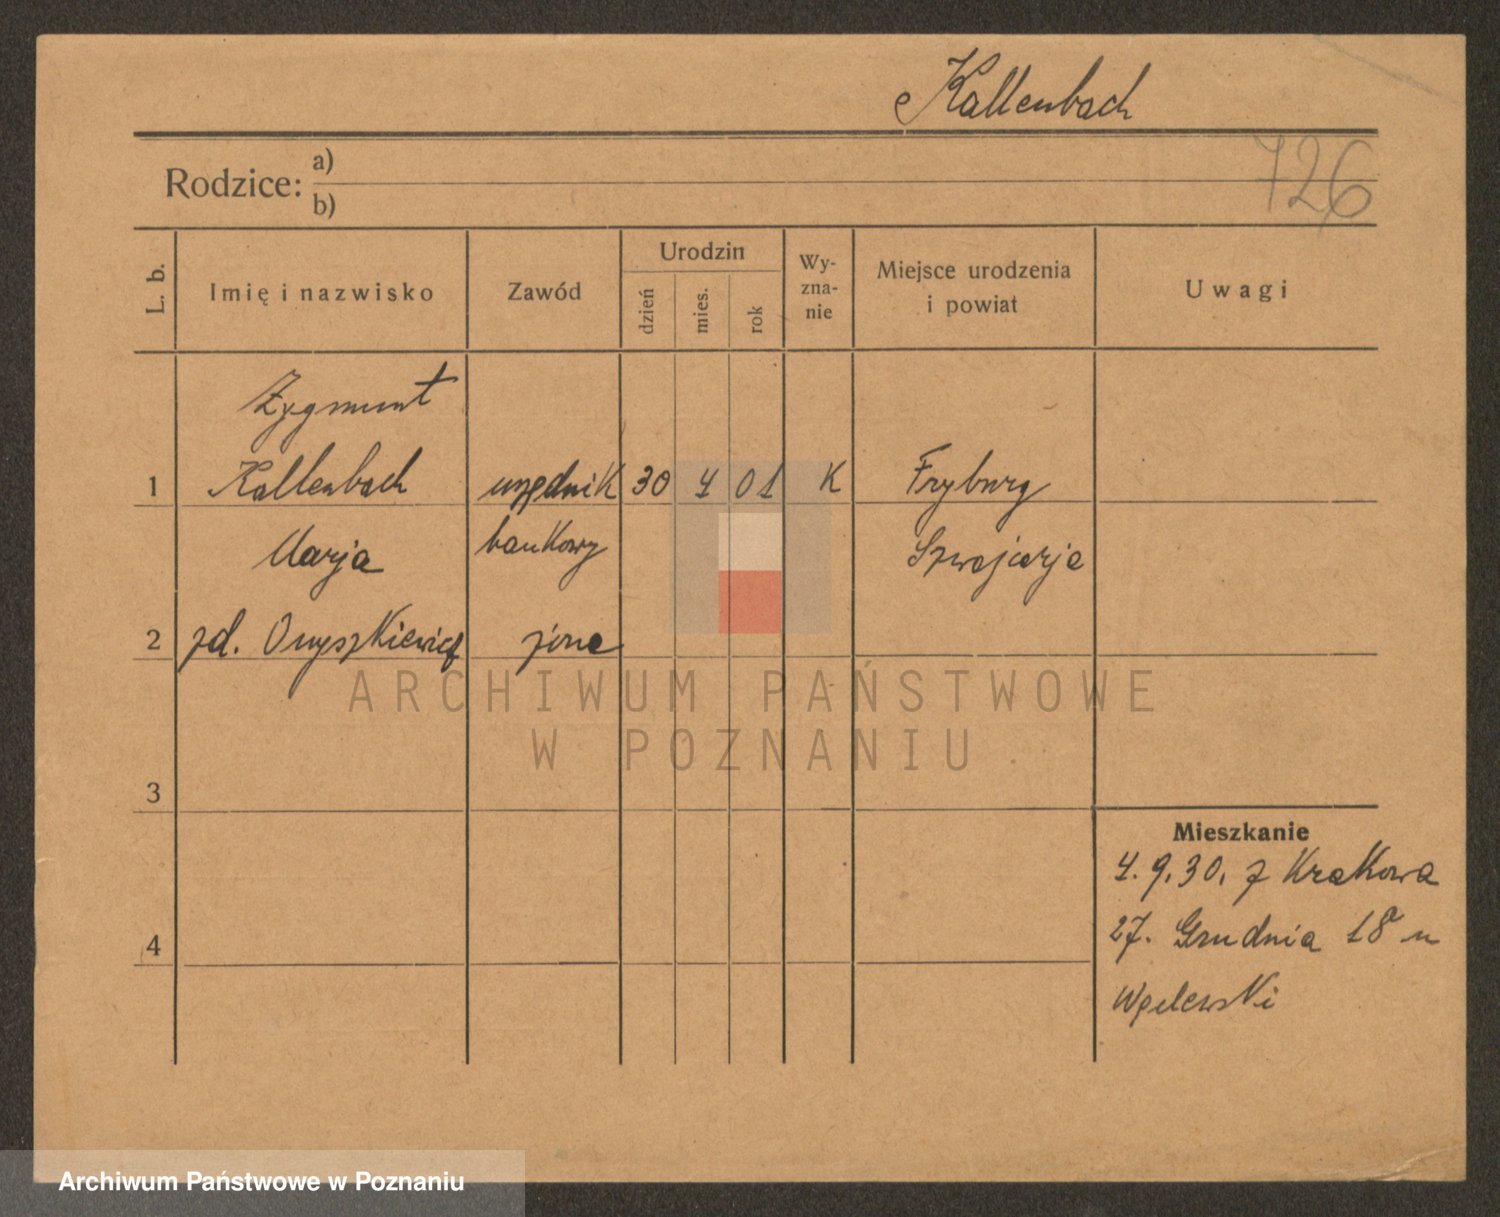 Kallenbach
Rodzice: a)
b)
726
L. b. Imię i nazwisko Zawód Urodzin dzień mies. rok Wy-zna-nie Miejsce urodzenia i powiat Uwagi
Zygmunt
1 Kallenbach urzędnik 30 4 01 K Fryburg
Marja bankowy Szwajcarja
2 zd. Onyszkiewicz żona
ARCHIWUM PAŃSTWOWE
W POZNANIU
3
Mieszkanie
4. 9. 30. z Krakowa
4 27. Grudnia 18 u
Archiwum Państwowe w Poznaniu